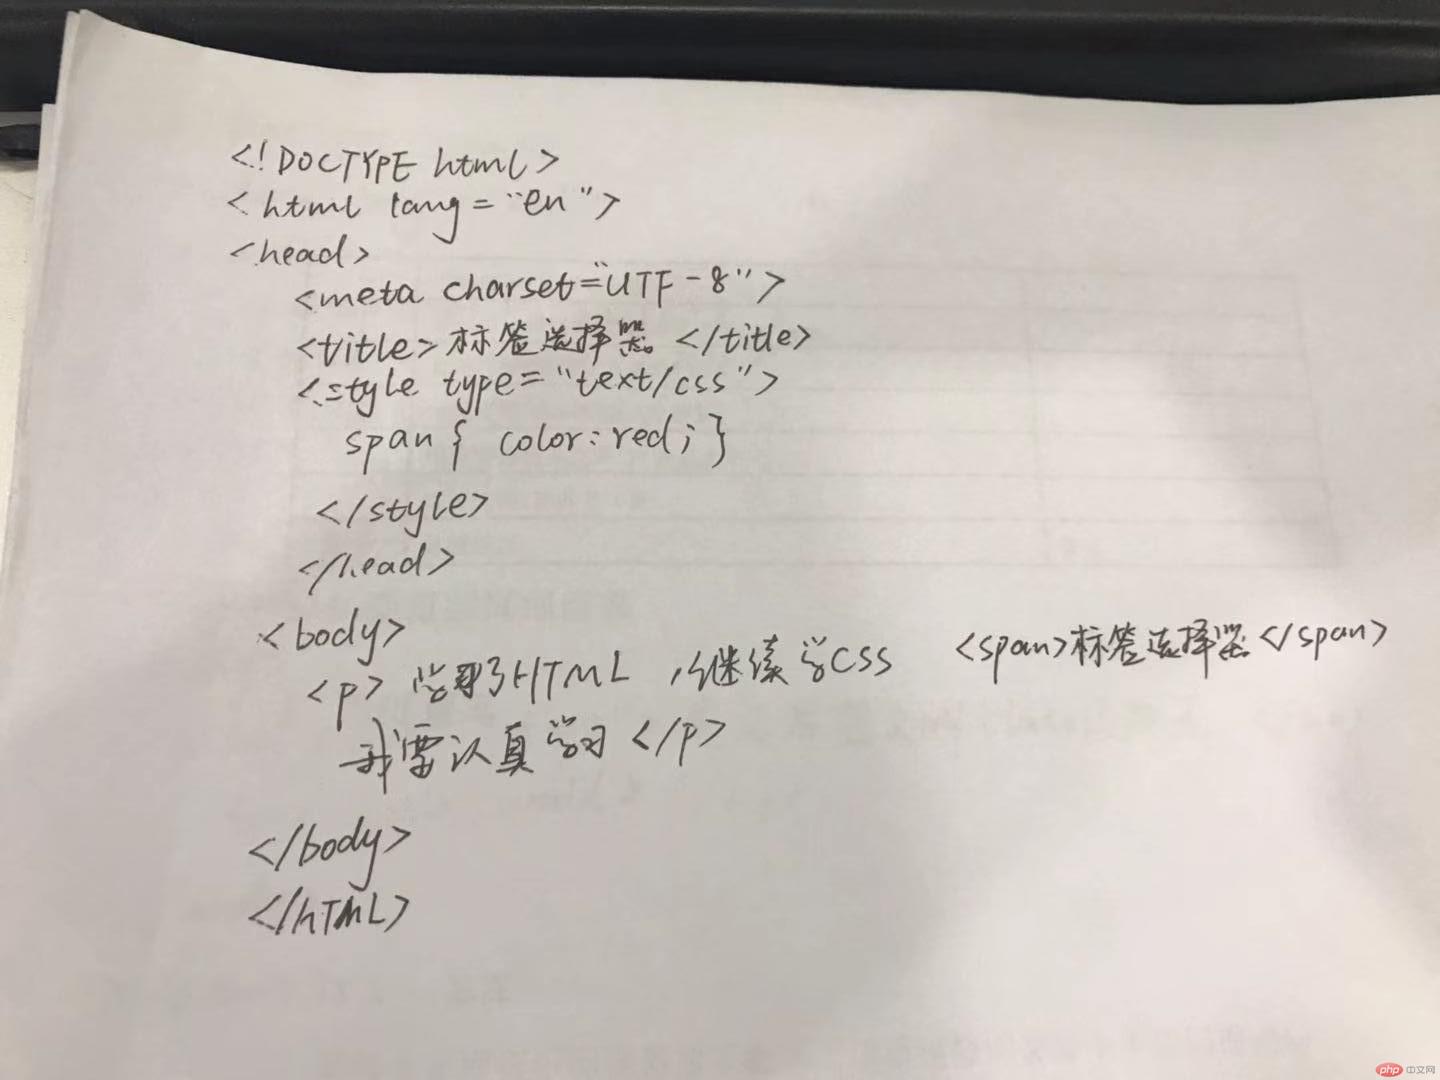 <!DOCTYPE html>
<html lang="en">
<head>
<meta charset="UTF-8">
<title>标签选择器</title>
<style type="text/css">
span{ color:red;}
</style>
</head>
<body>
<p>学习了HTML,继续学CSS <span>标签选择器</span>
我要认真学习</p>
</body>
</hTML>
php 中文网